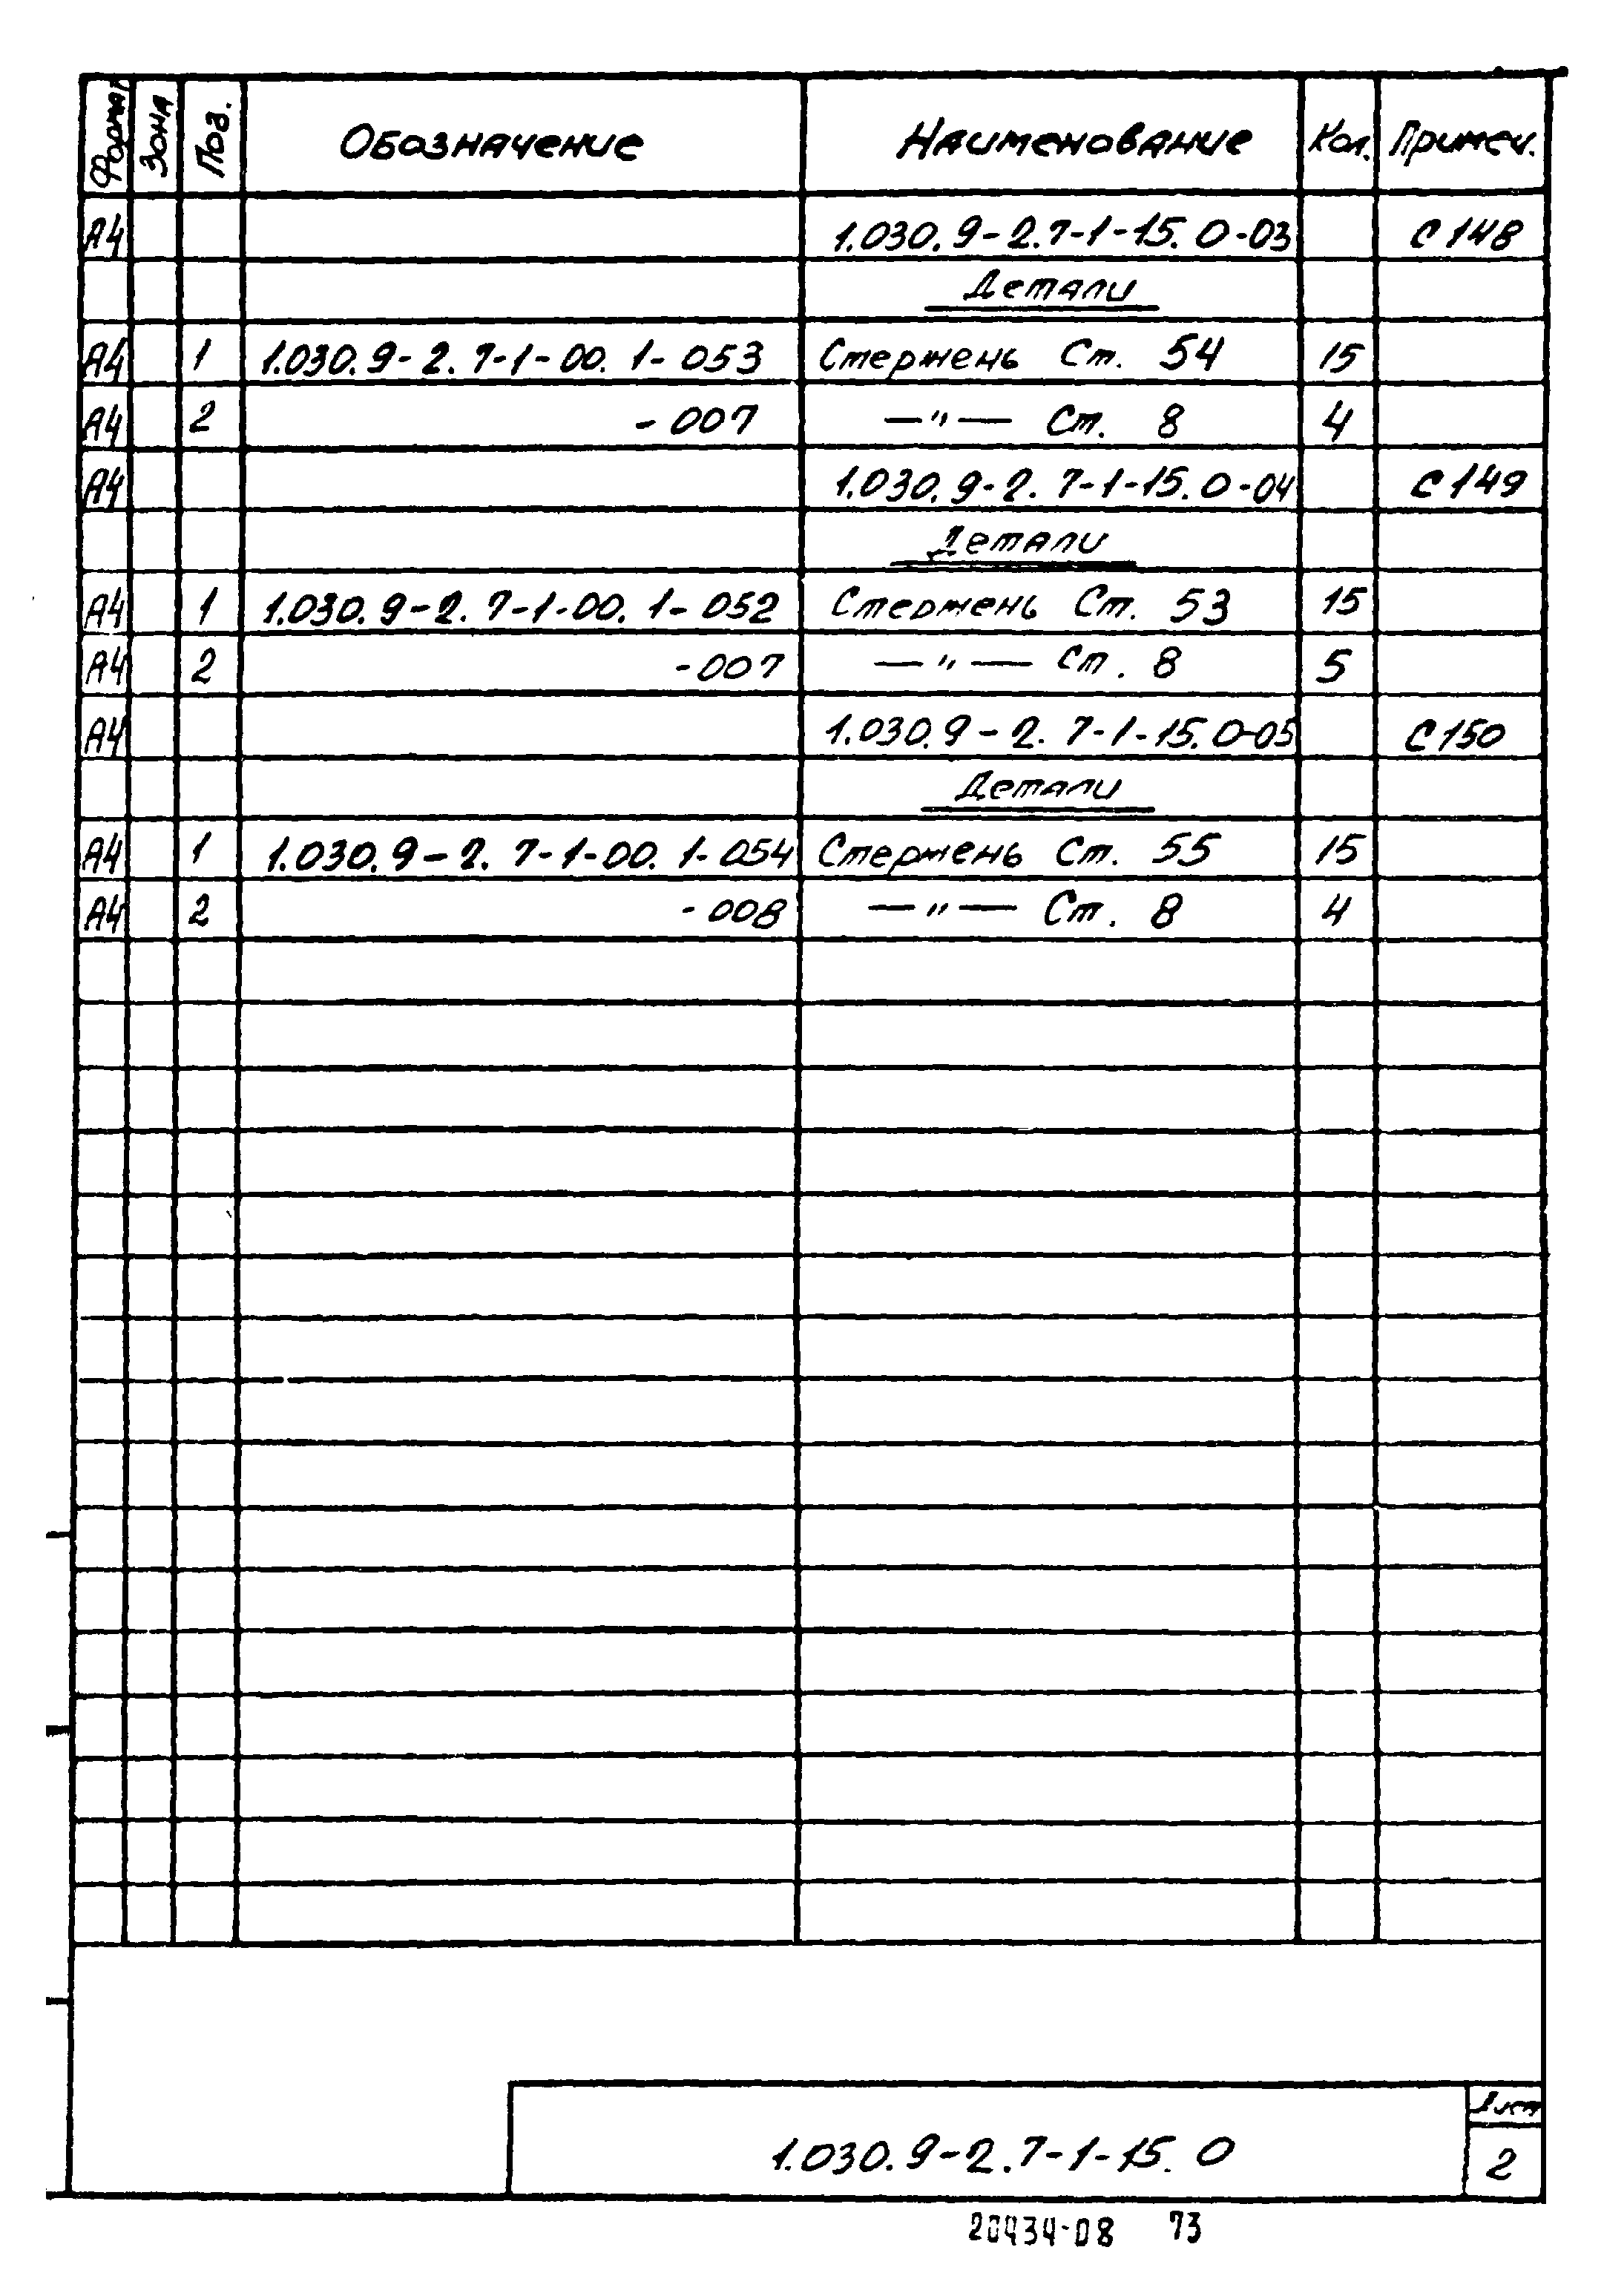 Формат Зона Поз. Обозначение Наименование Кол. Примеч.
А4 1.030.9-2.7-1-15.0-03 С148
Детали
А4 1 1.030.9-2.7-1-00.1-053 Стержень Ст. 54 15
А4 2 -007 —"— Ст. 8 4
А4 1.030.9-2.7-1-15.0-04 С149
Детали
А4 1 1.030.9-2.7-1-00.1-052 Стержень Ст. 53 15
А4 2 -007 —"— Ст. 8 5
А4 1.030.9-2.7-1-15.0-05 С150
Детали
А4 1 1.030.9-2.7-1-00.1-054 Стержень Ст. 55 15
А4 2 -008 —"— Ст. 8 4
Лист
1.030.9-2.7-1-15.0 2
20434-08 73